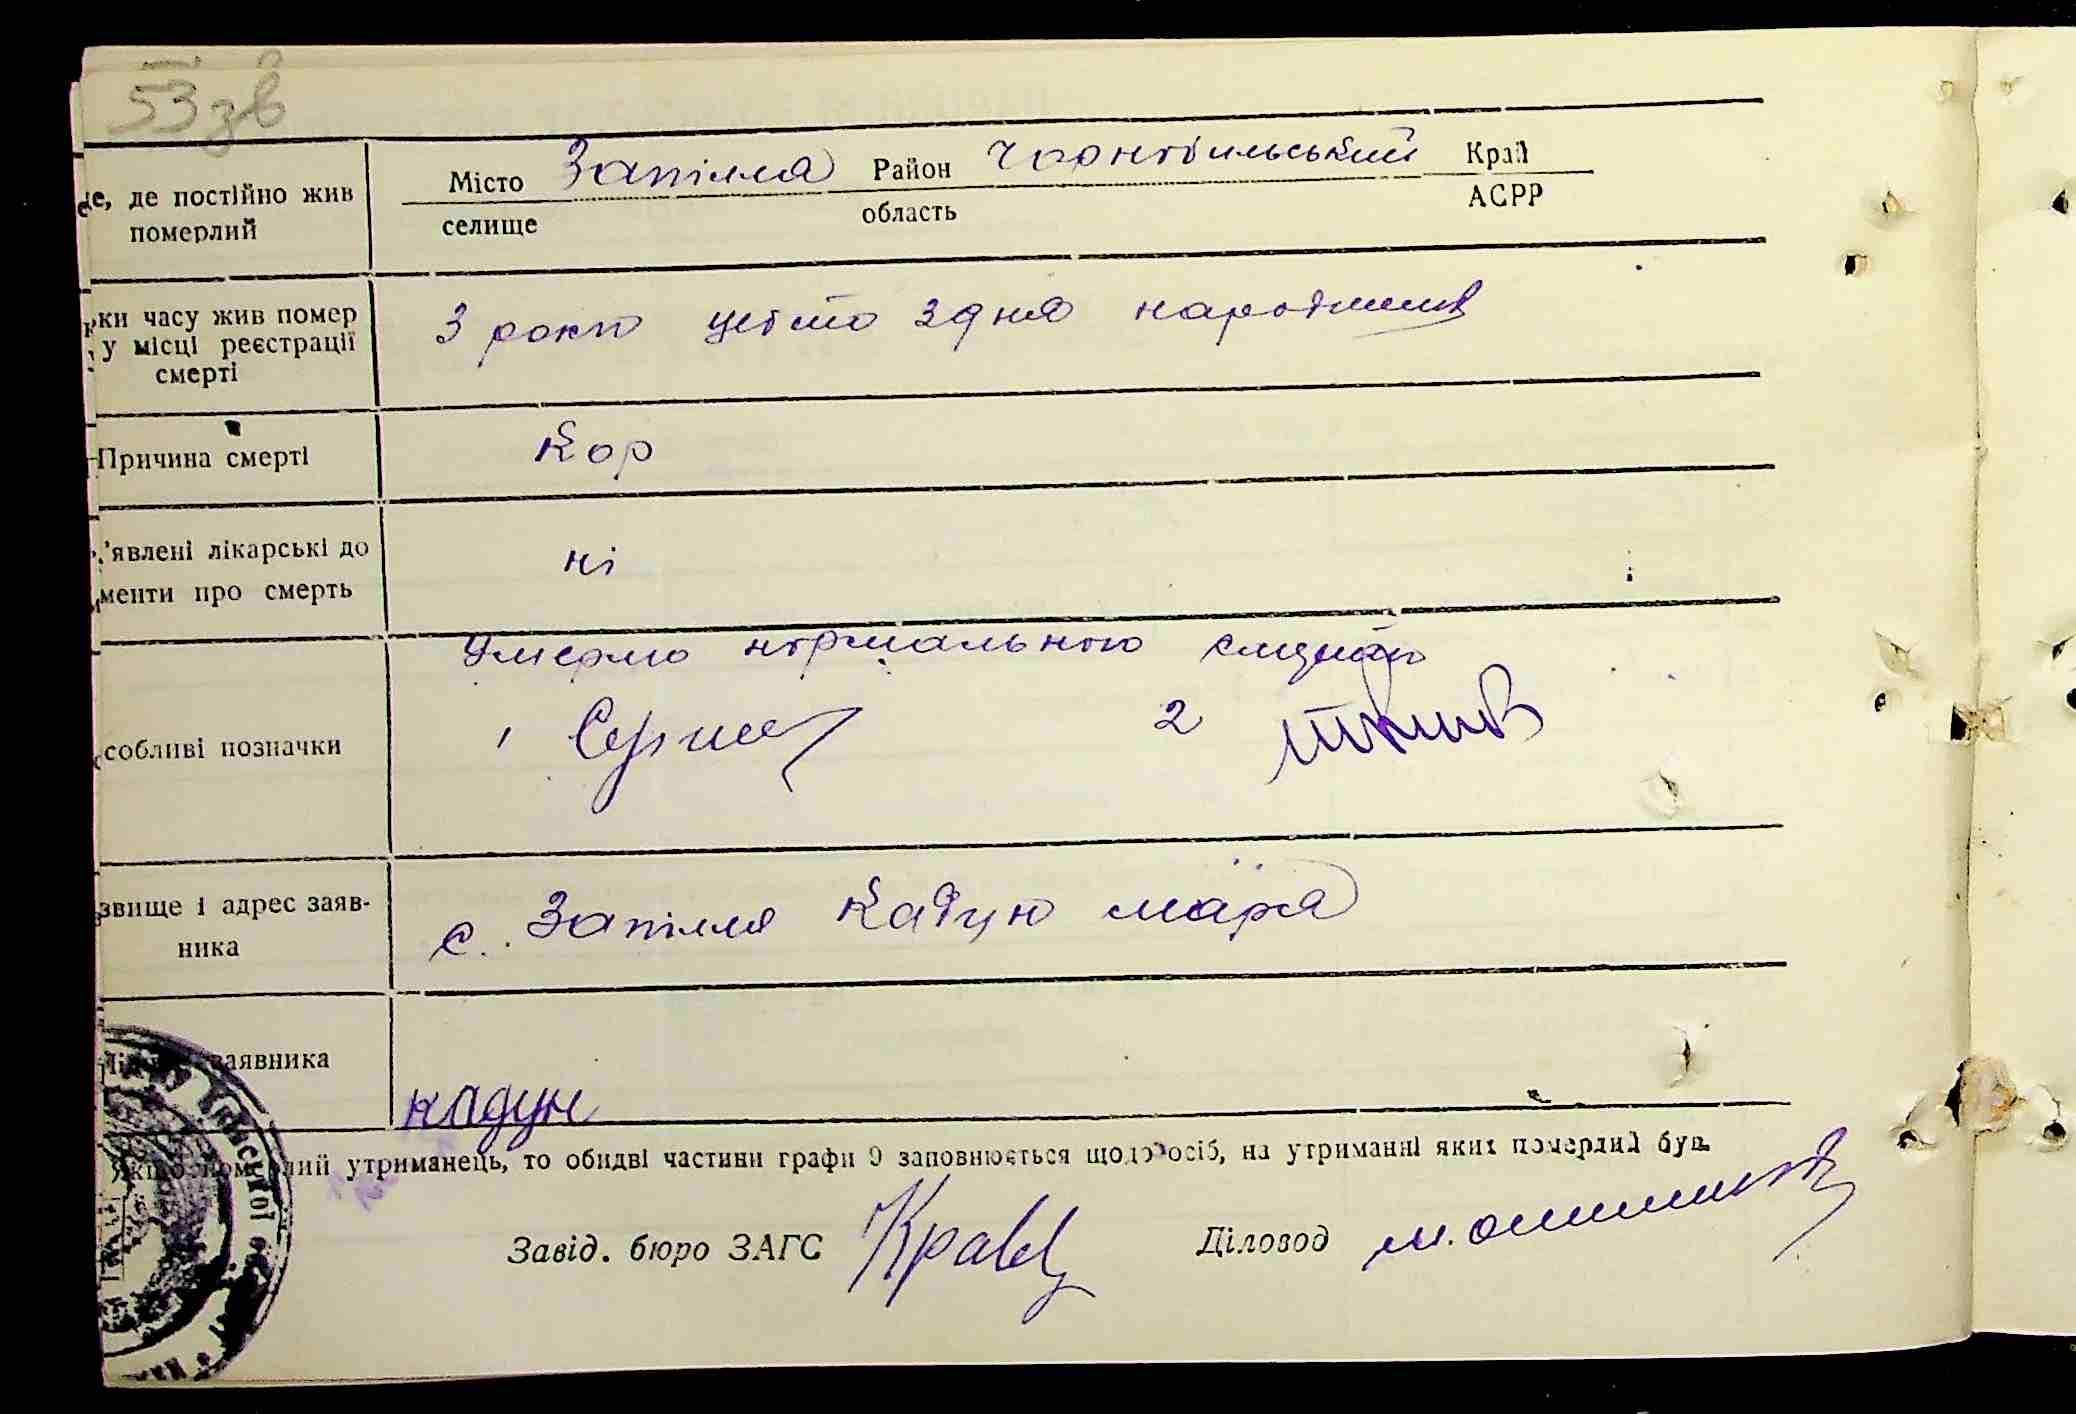 53 зв
Місто Запілля Район Чорнобильський Край
селище область АСРР
це, де постійно жив
померлий
ки часу жив помер
у місці реєстрації
смерті
3 роки з дня народження
Причина смерті
Кор
'явлені лікарські до
менти про смерть
ні
Умерло нормальною
собливі позначки
1 2
звище і адрес заяв-
ника
с. Запілля Кадун Марія
заявника
кадун
Якщо померлий утриманець, то обидві частини графи 9 заповнюється щодо осіб, на утриманні яких померлий був.
Завід. бюро ЗАГС Кравц Діловод